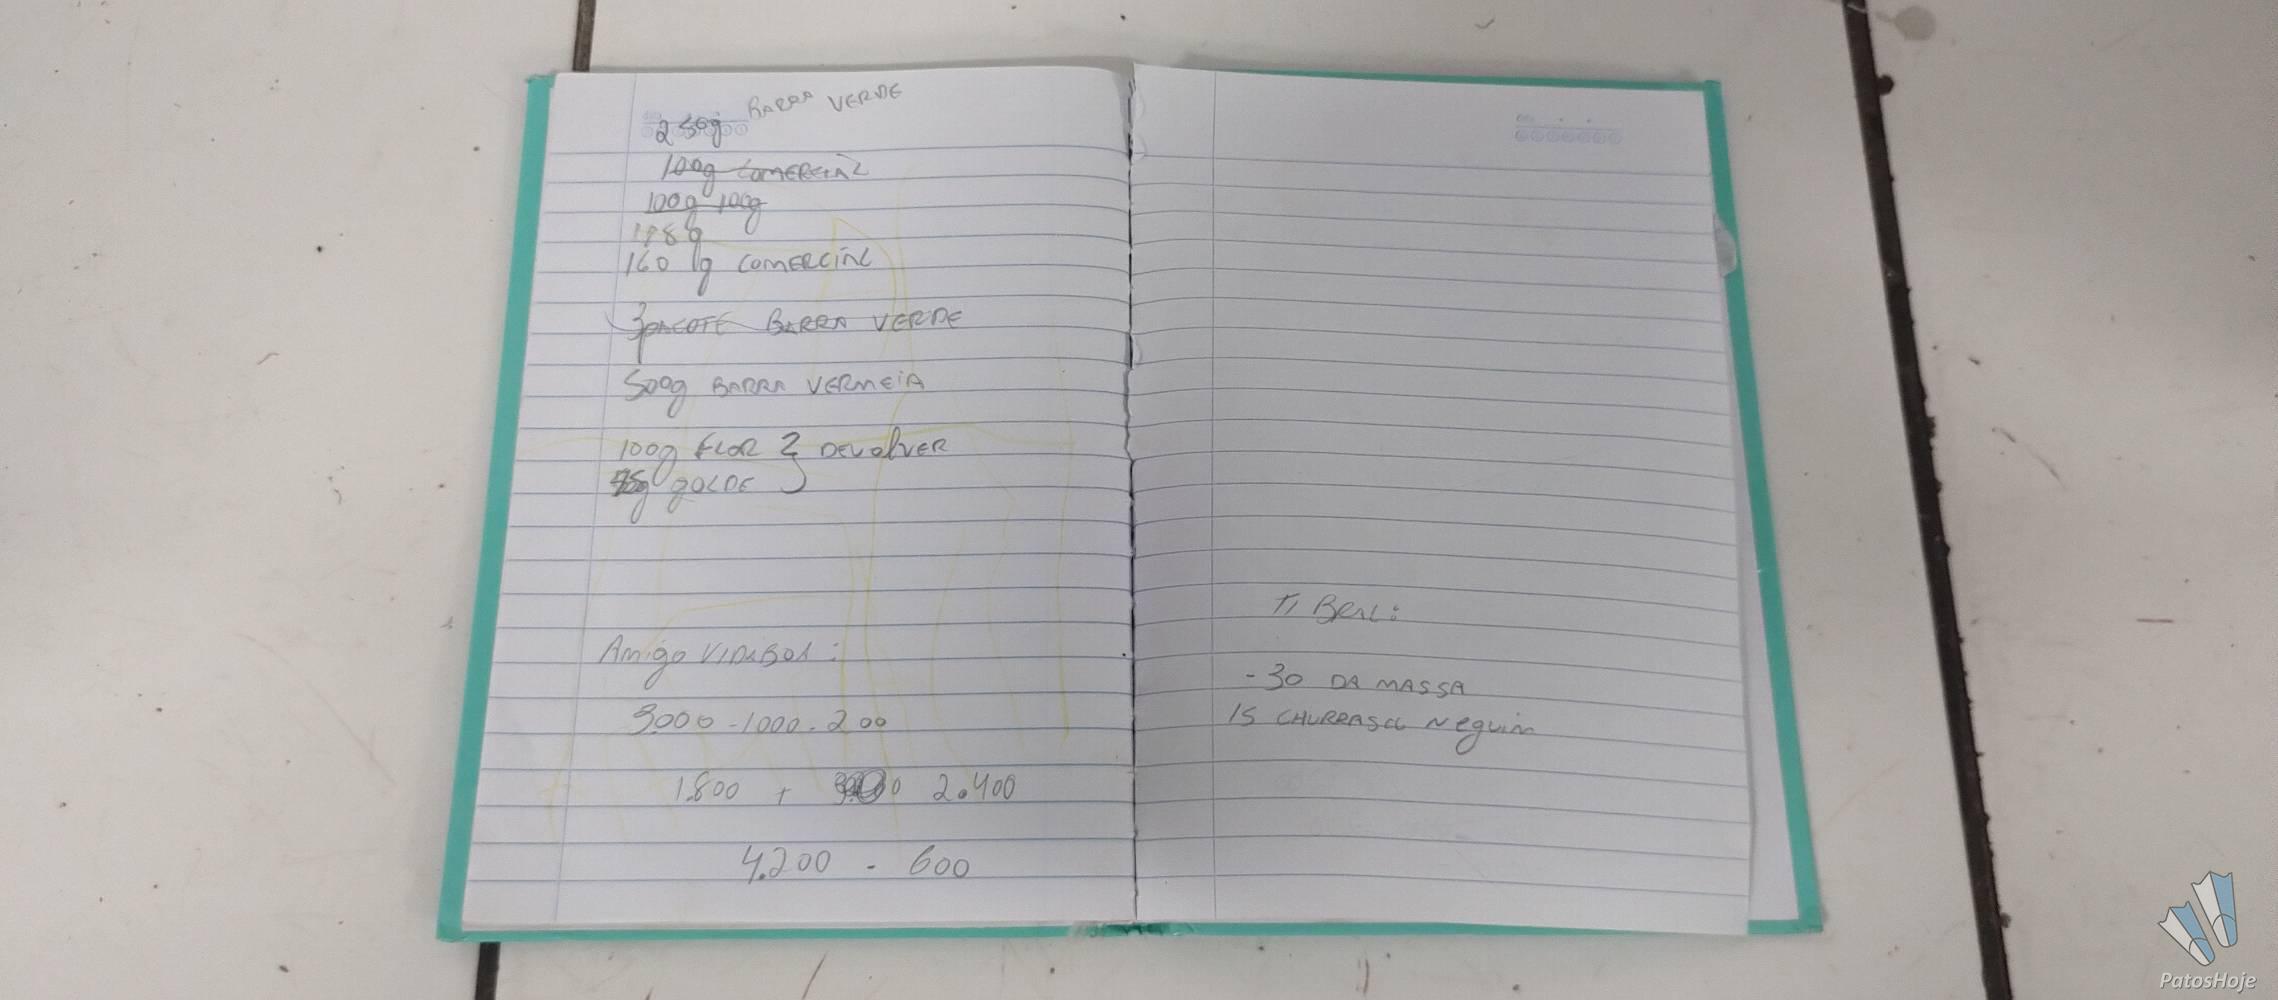 250g BARRA VERDE
100g COMERCIAL
100g 100g
198g
160g COMERCIAL
3 PACOTE BARRA VERDE
500g BARRA VERMEIA
100g FLOR } DEVOLVER
gOLDE
Amigo VIDABOA:
3000 - 1000 - 200
1.800 + 2.400
4.200 - 600
- 30 DA MASSA
15 CHURRASCO Neguim
PatosHoje